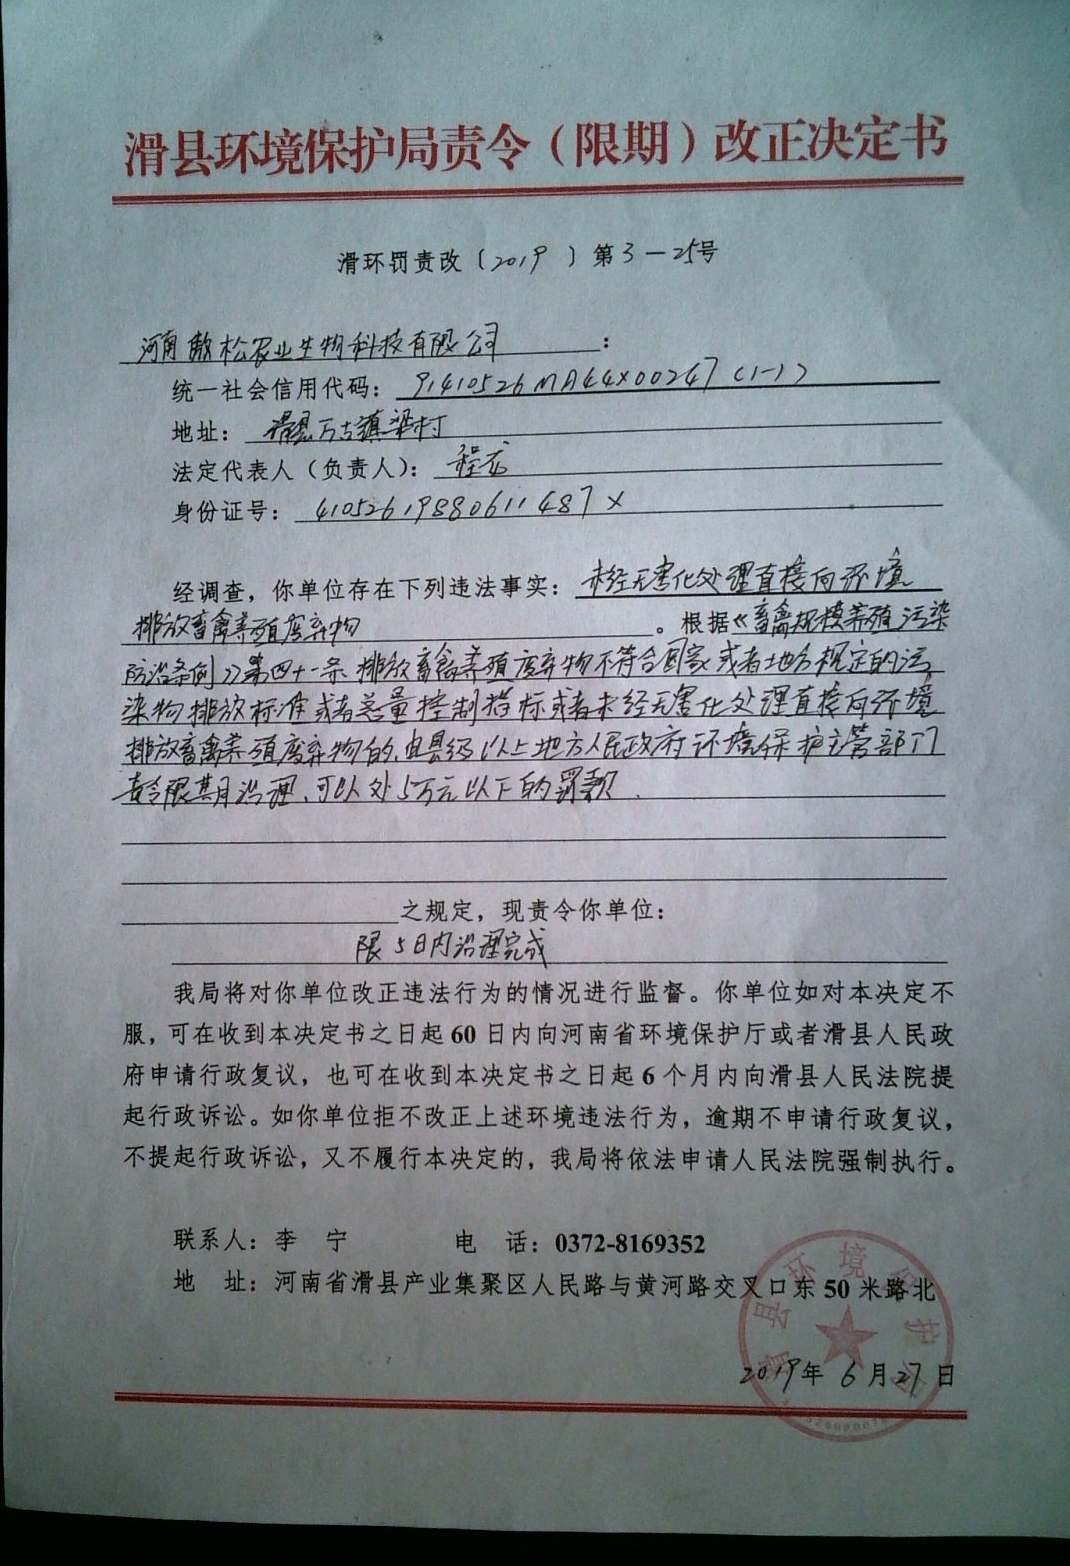 滑县环境保护局责令（限期）改正决定书
滑环罚责改〔2019〕第3-25号
河南散松农业生物科技有限公司：
统一社会信用代码：91410526MA44X00247（1-1）
地址：滑县万古镇梁村
法定代表人（负责人）：程龙
身份证号：41052619880611487X
经调查，你单位存在下列违法事实：未经无害化处理直接向环境
排放畜禽养殖废弃物。根据《畜禽规模养殖污染
防治条例》第四十一条 排放畜禽养殖废弃物不符合国家或者地方规定的污
染物排放标准或者总量控制指标或者未经无害化处理直接向环境
排放畜禽养殖废弃物的，由县级以上地方人民政府环境保护主管部门
责令限期治理、可以处5万元以下的罚款.
之规定，现责令你单位：
限5日内治理完成
我局将对你单位改正违法行为的情况进行监督。你单位如对本决定不
服，可在收到本决定书之日起60日内向河南省环境保护厅或者滑县人民政
府申请行政复议，也可在收到本决定书之日起6个月内向滑县人民法院提
起行政诉讼。如你单位拒不改正上述环境违法行为，逾期不申请行政复议，
不提起行政诉讼，又不履行本决定的，我局将依法申请人民法院强制执行。
联系人：李 宁 电 话：0372-8169352
地 址：河南省滑县产业集聚区人民路与黄河路交叉口东50米路北
滑县环境保护局
2019年6月27日